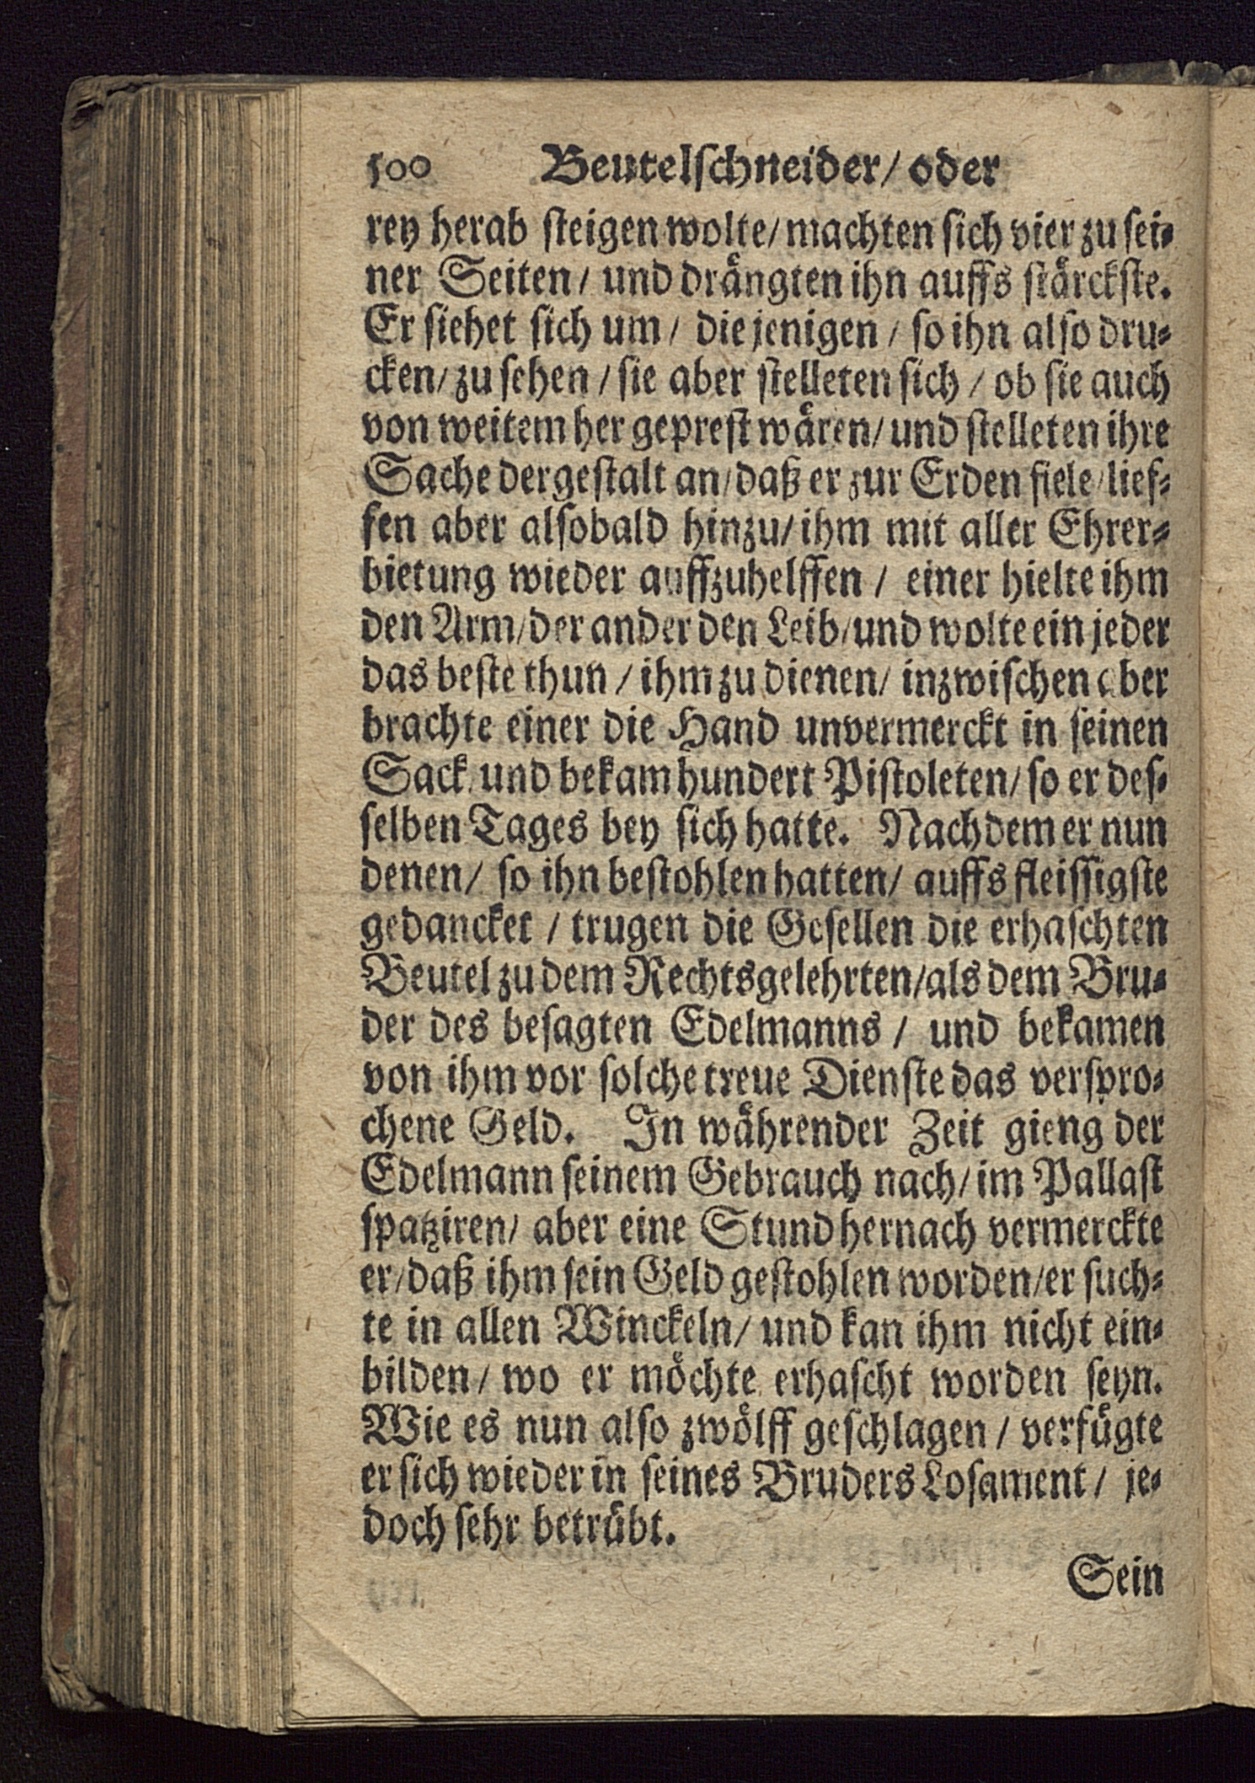 500 Beutelschneider/ oder
rey herab steigen wolte/ machten sich vier zu sei-
ner Seiten/ und drängten ihn auffs stärckste.
Er siehet sich um/ die jenigen/ so ihn also dru-
cken/ zu sehen/ sie aber stelleten sich/ ob sie auch
von weitem her geprest wären/ und stelleten ihre
Sache dergestalt an/ daß er zur Erden fiele/ lief-
fen aber alsobald hinzu/ ihm mit aller Ehrer-
bietung wieder auffzuhelffen/ einer hielte ihm
den Arm/ der ander den Leib/ und wolte ein jeder
das beste thun/ ihm zu dienen/ inzwischen aber
brachte einer die Hand unvermerckt in seinen
Sack/ und bekam hundert Pistoleten/ so er des-
selben Tages bey sich hatte. Nachdem er nun
denen/ so ihn bestohlen hatten/ auffs fleissigste
gedancket/ trugen die Gesellen die erhaschten
Beutel zu dem Rechtsgelehrten/ als dem Bru-
der des besagten Edelmanns/ und bekamen
von ihm vor solche treue Dienste das verspro-
chene Geld. In währender Zeit gieng der
Edelmann seinem Gebrauch nach/ im Pallast
spatziren/ aber eine Stund hernach vermerckte
er/ daß ihm sein Geld gestohlen worden/ er such-
te in allen Winckeln/ und kan ihm nicht ein-
bilden/ wo er möchte erhascht worden seyn.
Wie es nun also zwölff geschlagen/ verfügte
er sich wieder in seines Bruders Losament/ je-
doch sehr betrübt.
Sein